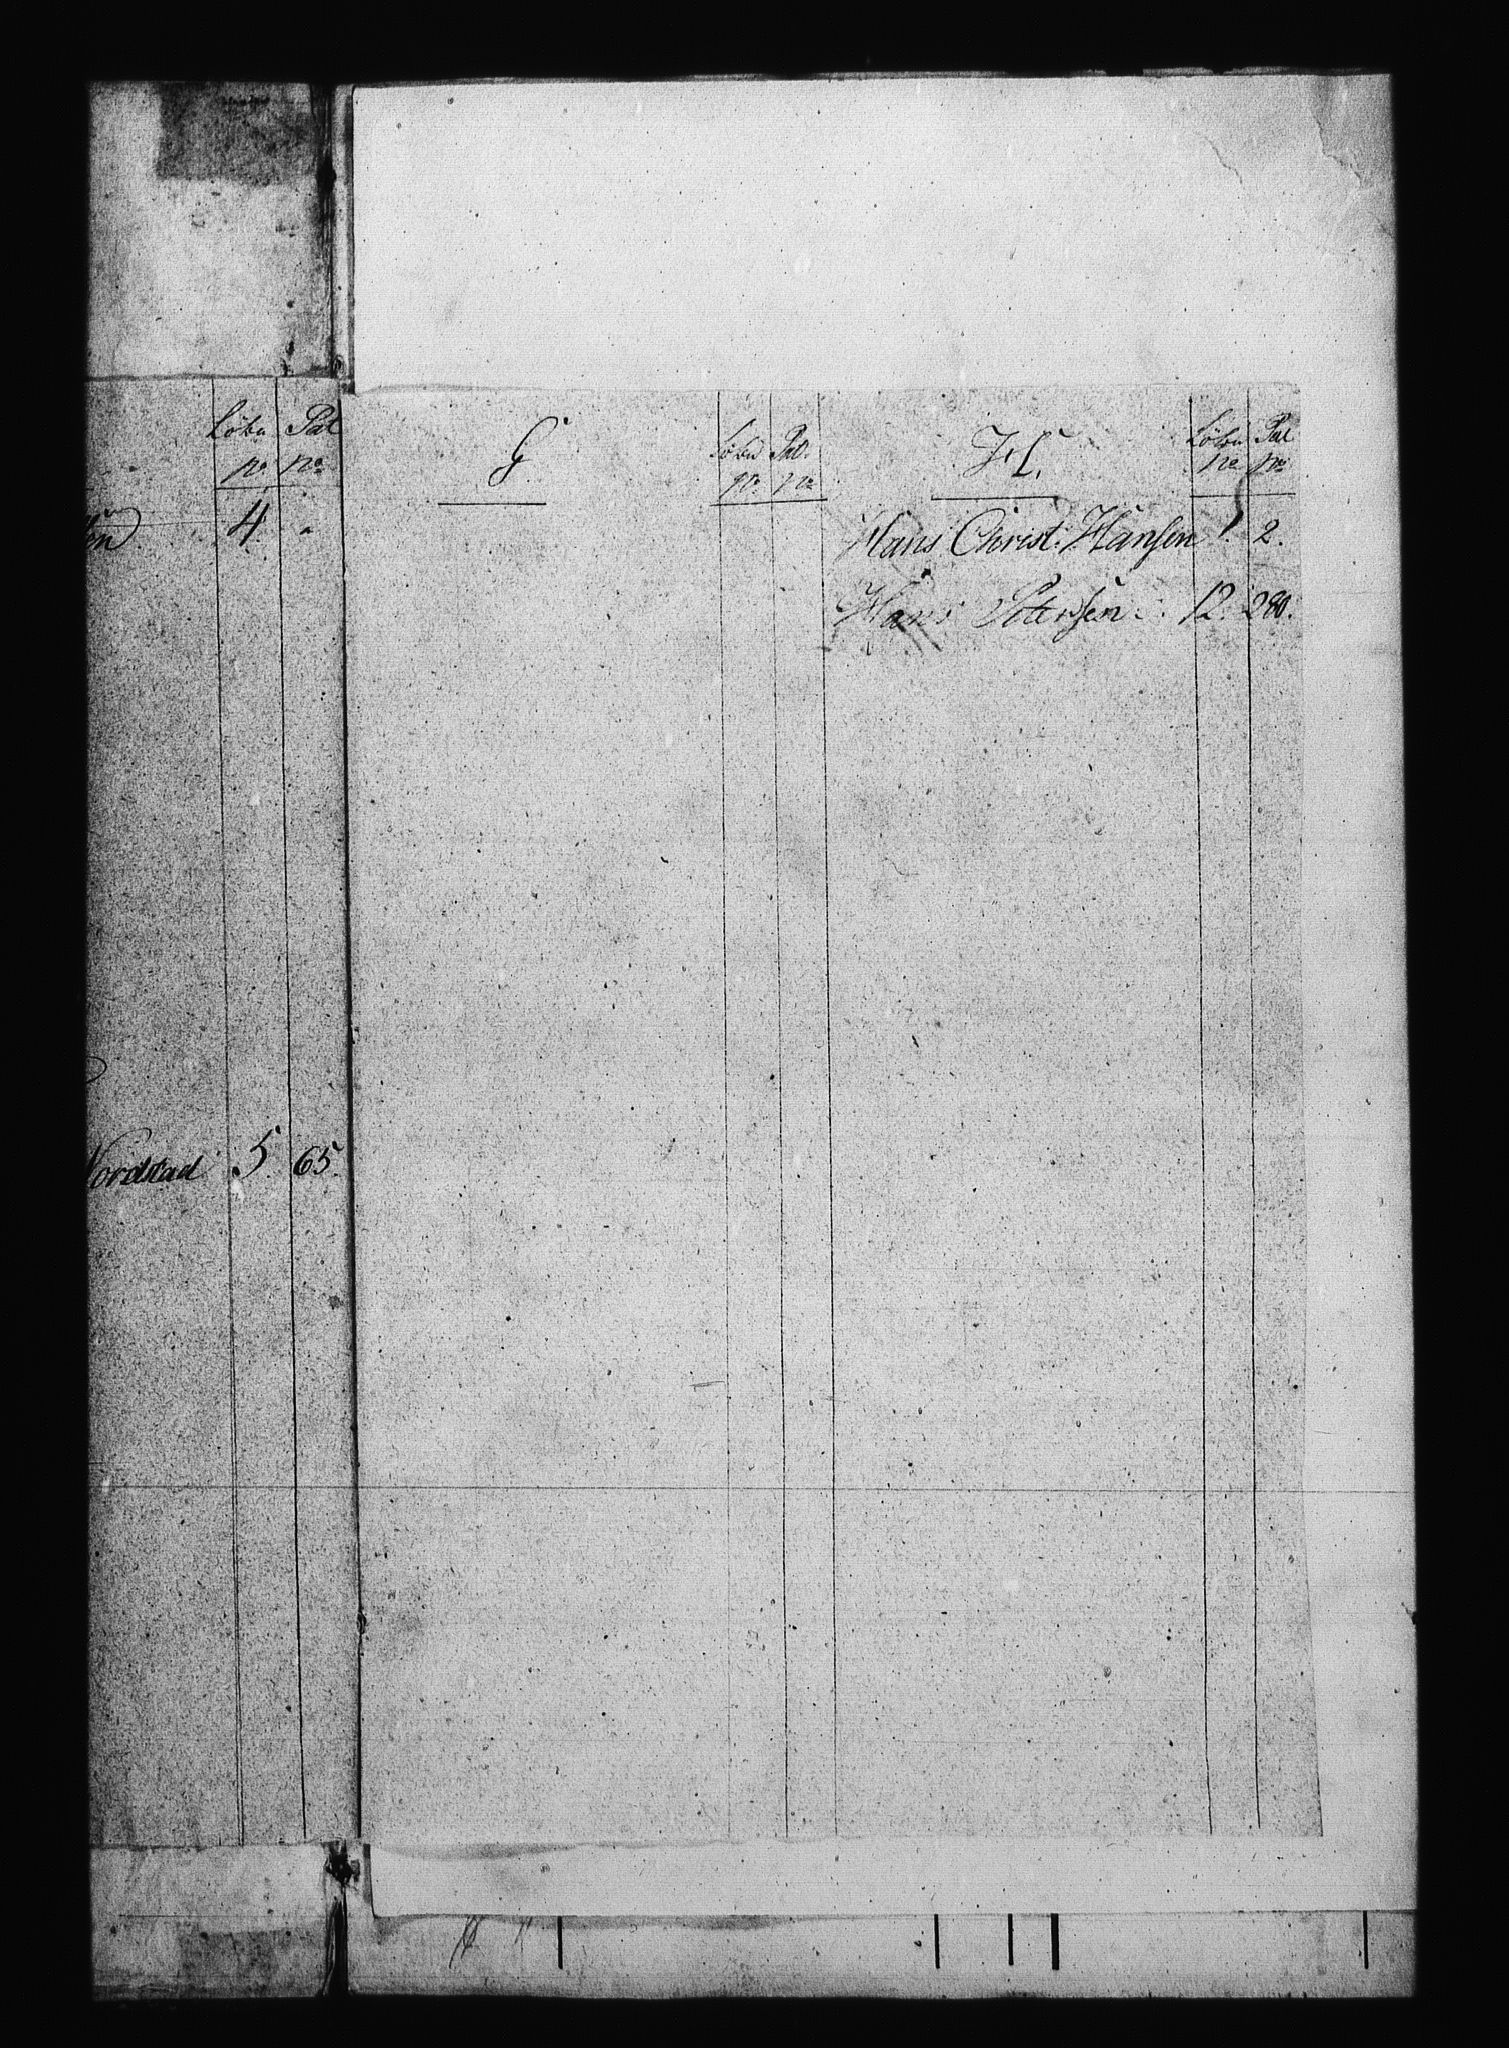 Löbn Pat
no no
4 "
Nordstad 5. 65.
G
Löbn Pat.
no no
H.
Löbn Pat
no no
Hans Christ: Hansen 1 2.
Hans Petersen 12. 280.